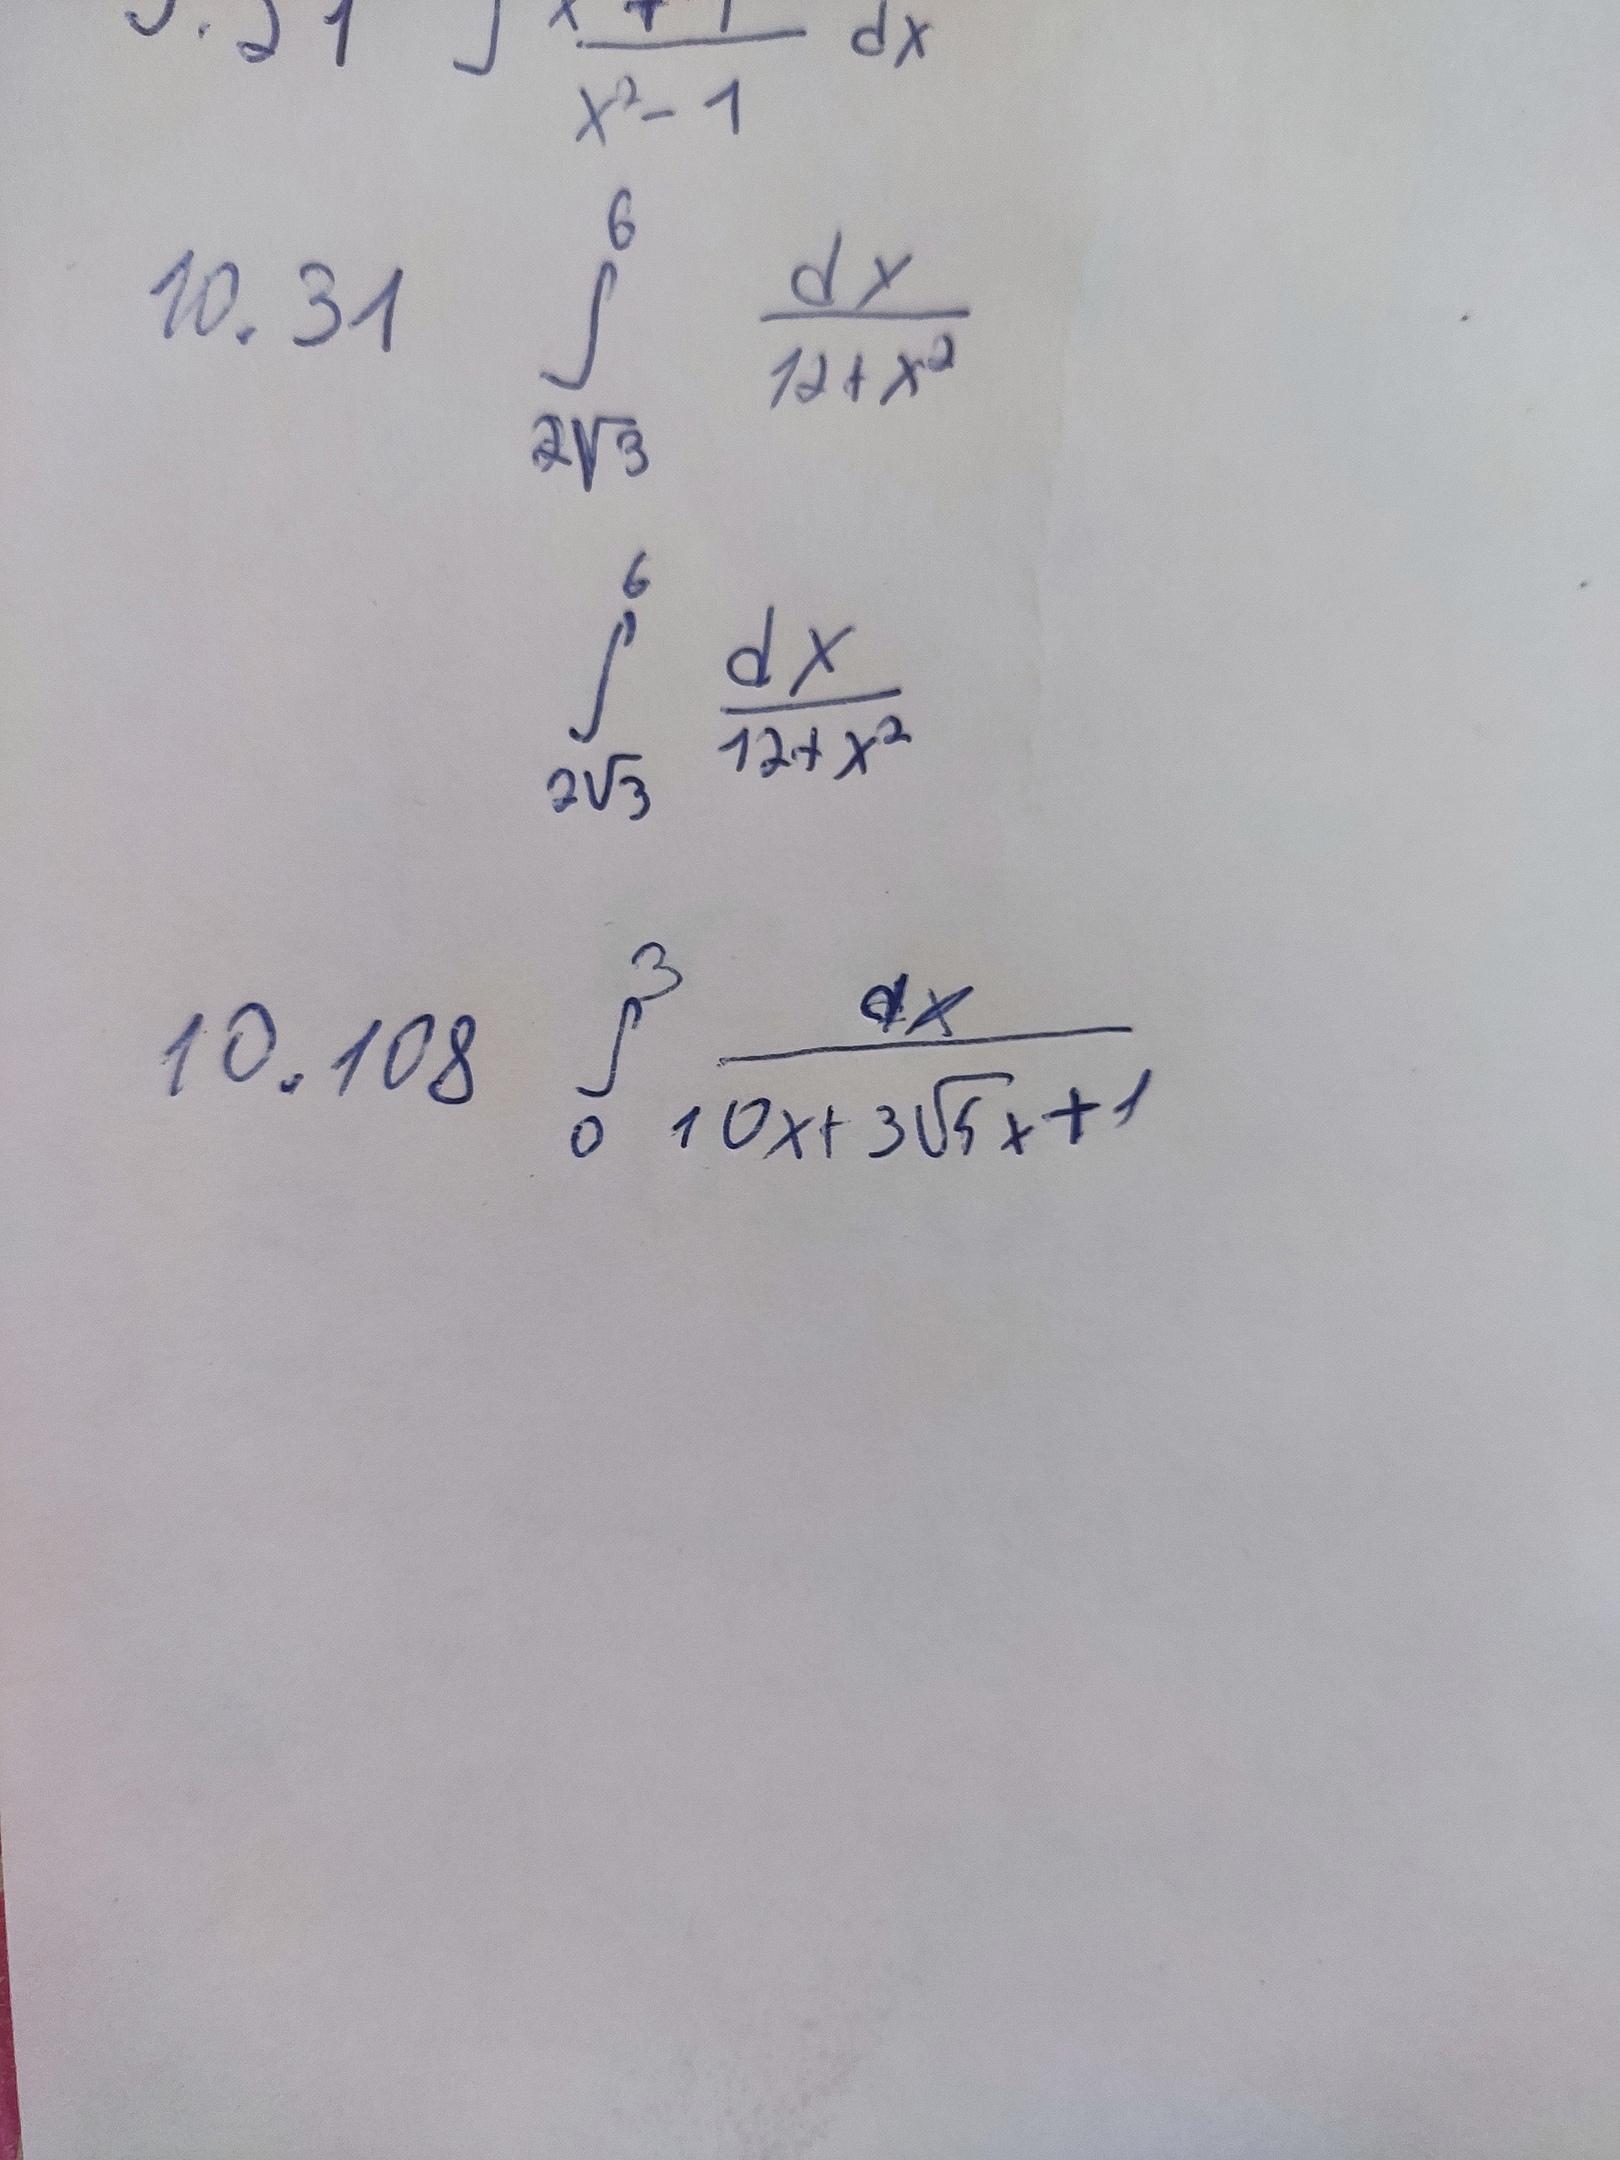 .21 ∫ x+1/x²-1 dx
10.31 ∫_{2√3}^{6} dx/12+x²
∫_{2√3}^{6} dx/12+x²
10.108 ∫_{0}^{3} dx/10x+3√5x+1